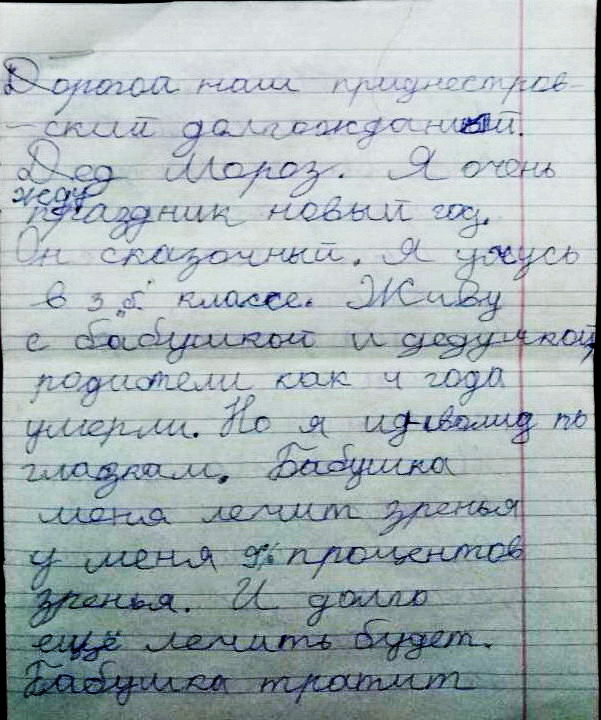 Дорогой наш приднестров-
-ский долгожданный.
Дед Мороз. Я очень
жду
праздник новый год.
Он сказочный. Я учусь
в 3 „б" классе. Живу
с бабушкой и дедушкой,
родители как 4 года
умерли. Но я инвалид по
глазкам. Бабушка
меня лечит зренья
у меня % процентов
зренья. И долго
ещё лечить будет.
Бабушка тратит